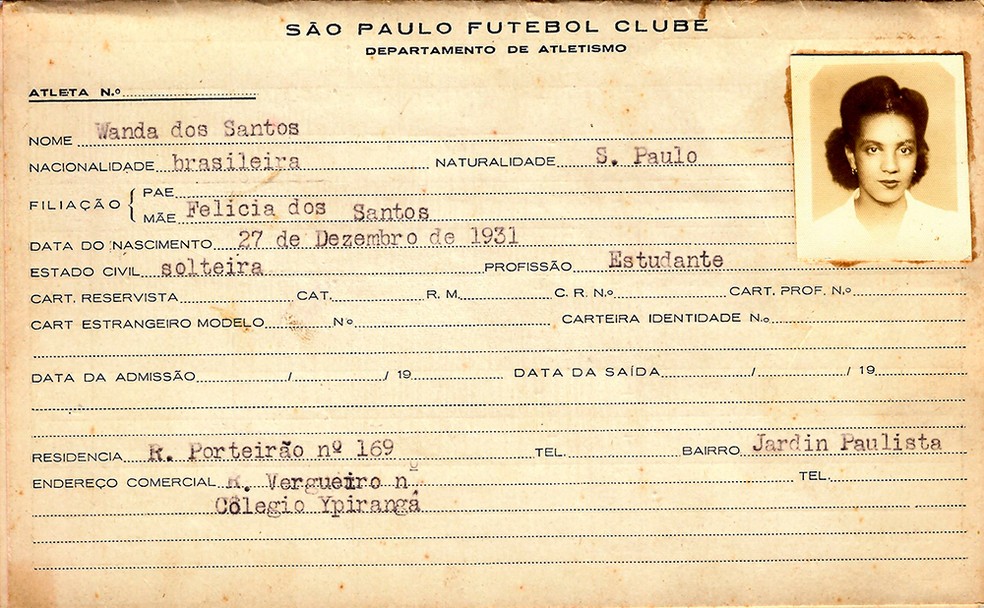 SÃO PAULO FUTEBOL CLUBE
DEPARTAMENTO DE ATLETISMO
ATLETA N.º
NOME Wanda dos Santos
NACIONALIDADE brasileira NATURALIDADE S. Paulo
FILIAÇÃO { PAE
MÃE Felicia dos Santos
DATA DO NASCIMENTO 27 de Dezembro de 1931
ESTADO CIVIL solteira PROFISSÃO Estudante
CART. RESERVISTA CAT. R. M. C. R. N.º CART. PROF. N.º
CART ESTRANGEIRO MODELO Nº CARTEIRA IDENTIDADE N.º
DATA DA ADMISSÃO / / 19 DATA DA SAÍDA / / 19
RESIDENCIA R. Porteirão nº 169 TEL. BAIRRO Jardin Paulista
ENDEREÇO COMERCIAL R. Vergueiro nº TEL.
Cólegio Ypirangá